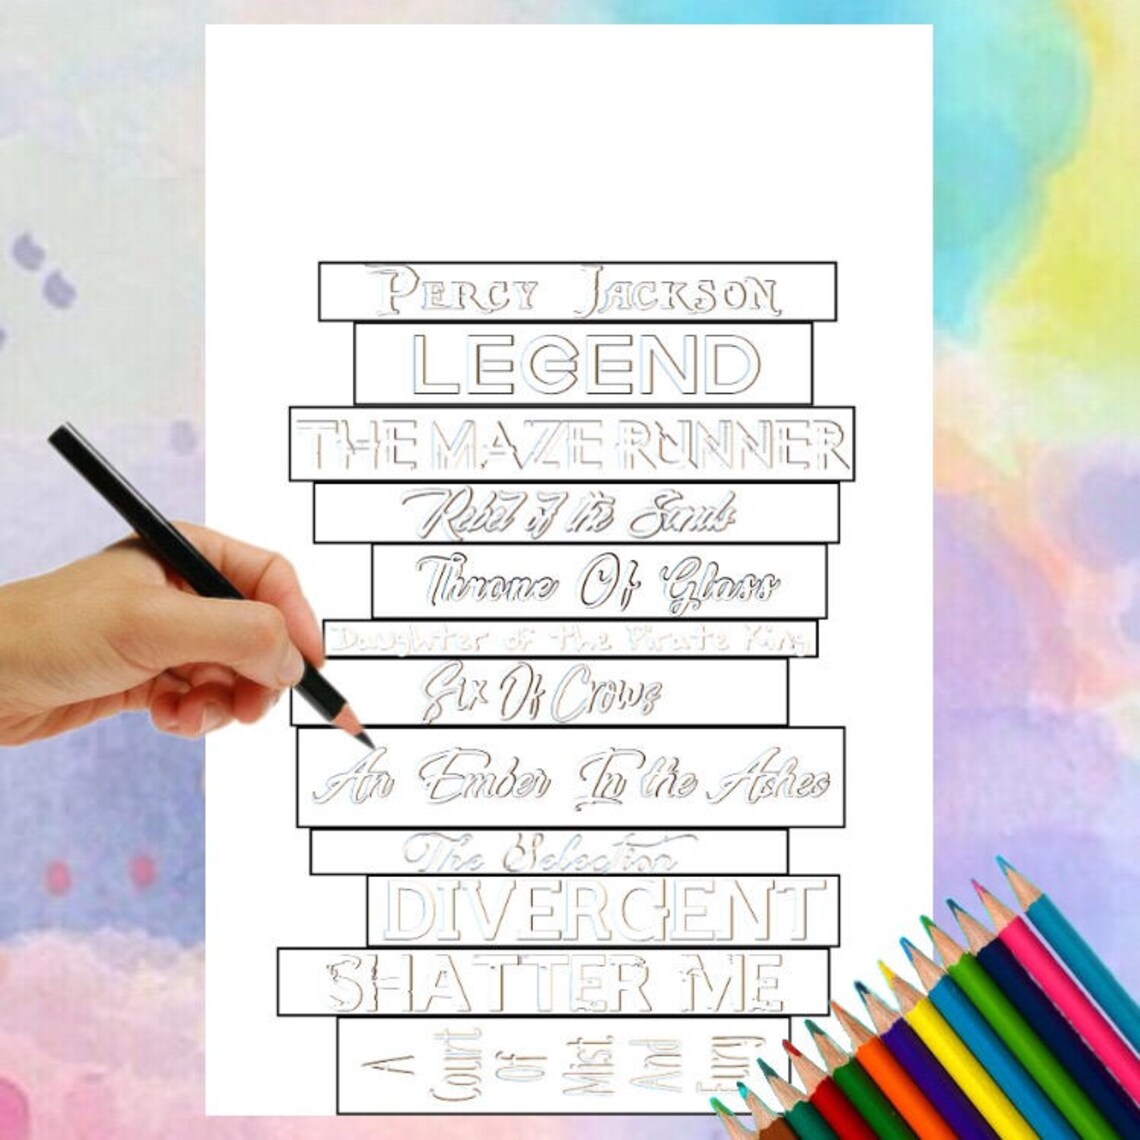 PERCY JACKSON
LEGEND
THE MAZE RUNNER
Rebel of the Sands
Throne Of Glass
Daughter of the Pirate King
Six Of Crows
An Ember In the Ashes
The Selection
DIVERGENT
SHATTER ME
A Court Of Mist And Fury